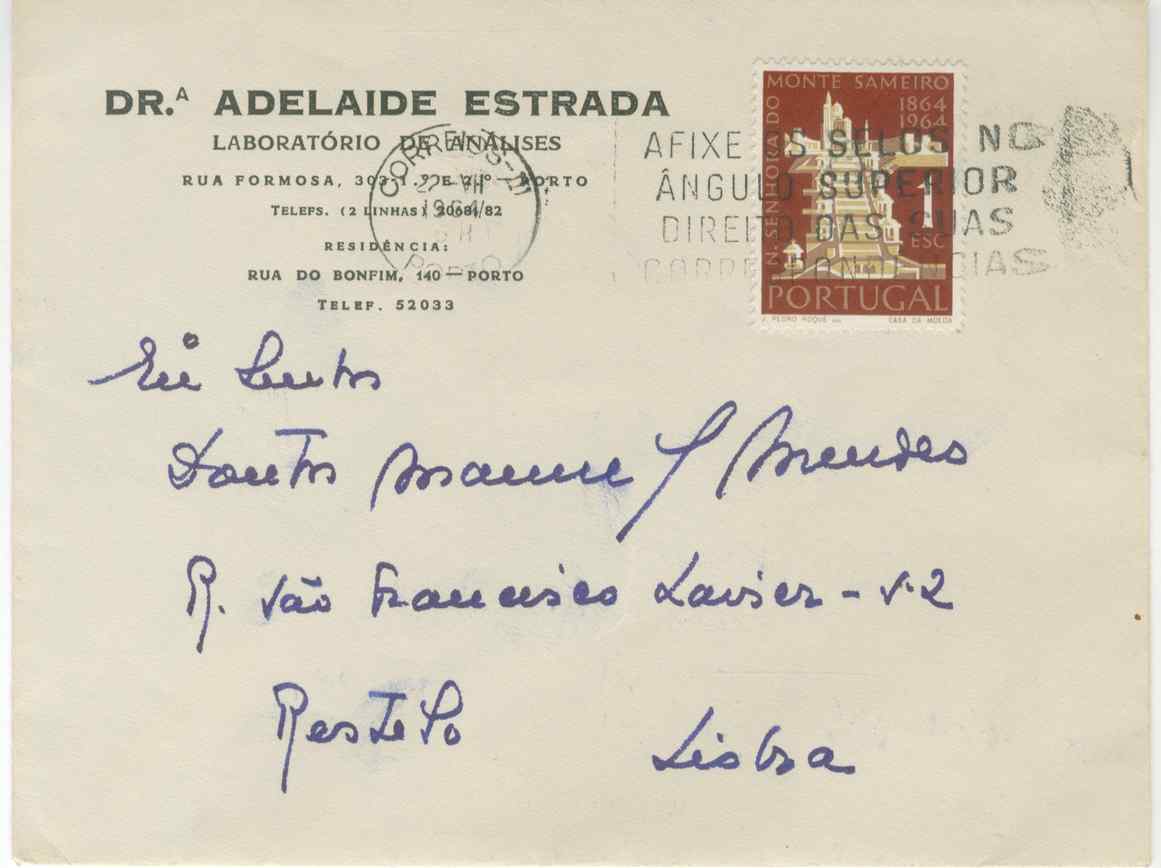 DR.ª ADELAIDE ESTRADA
LABORATÓRIO DE ANÁLISES
RUA FORMOSA, 303-1.º E 2.º — PORTO
TELEFS. (2 LINHAS) 20681/82
RESIDÊNCIA:
RUA DO BONFIM, 140 — PORTO
TELEF. 52033
CORREIOS
1964
PORTO
AFIXE OS SELOS NO
ÂNGULO SUPERIOR
DIREITO DAS SUAS
CORRESPONDÊNCIAS
N. SENHORA DO MONTE SAMEIRO
1864
1964
1
ESC
PORTUGAL
J. PEDRO ROQUE CASA DA MOEDA
Doutor Manuel Mendes
R. São Francisco Xavier -
Restelo Lisboa